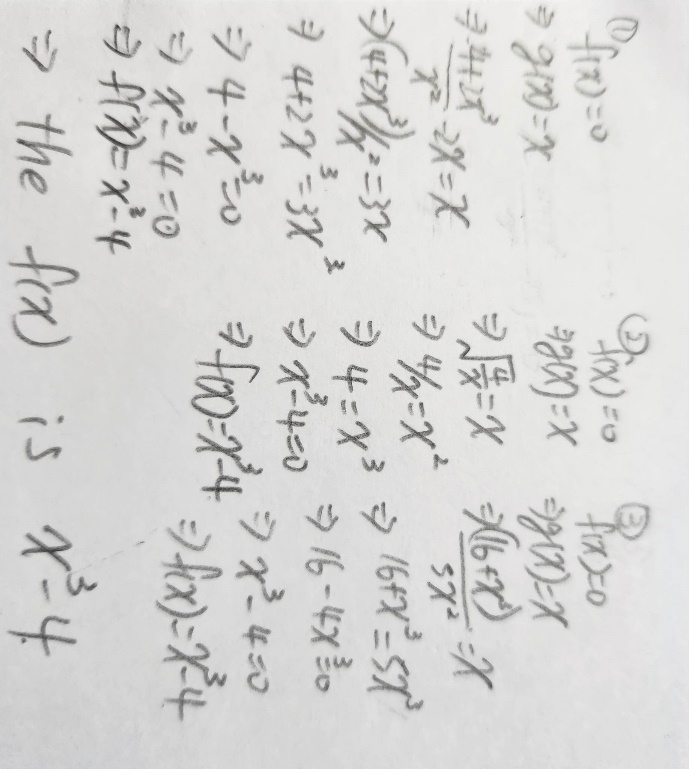 ① f(x)=0
⇒ g(x)=x
⇒ 4+2x³/x² -2x=x
⇒ (4+2x³)/x²=3x
⇒ 4+2x³=3x³
⇒ 4-x³=0
⇒ x³-4=0
⇒ f(x)=x³-4
② f(x)=0
⇒ g(x)=x
⇒ √(4/x)=x
⇒ 4/x=x²
⇒ 4=x³
⇒ x³-4=0
⇒ f(x)=x³-4
③ f(x)=0
⇒ g(x)=x
⇒ (16+x³)/5x²=x
⇒ 16+x³=5x³
⇒ 16-4x³=0
⇒ x³-4=0
⇒ f(x)=x³-4
⇒ the f(x) is x³-4